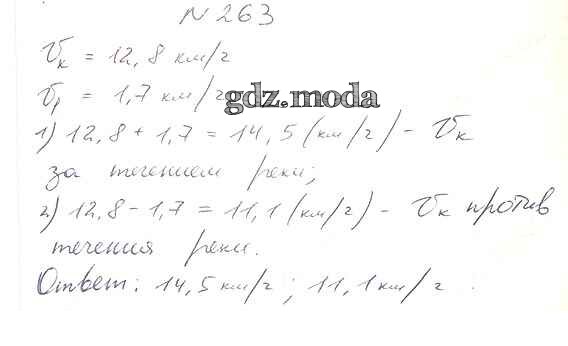 N 263
Vк = 12,8 км/г
Vр = 1,7 км/г
gdz.moda
1) 12,8 + 1,7 = 14,5 (км/г) - Vк
за течением реки;
2) 12,8 - 1,7 = 11,1 (км/г) - Vк против
течения реки.
Ответ: 14,5 км/г; 11,1 км/г.